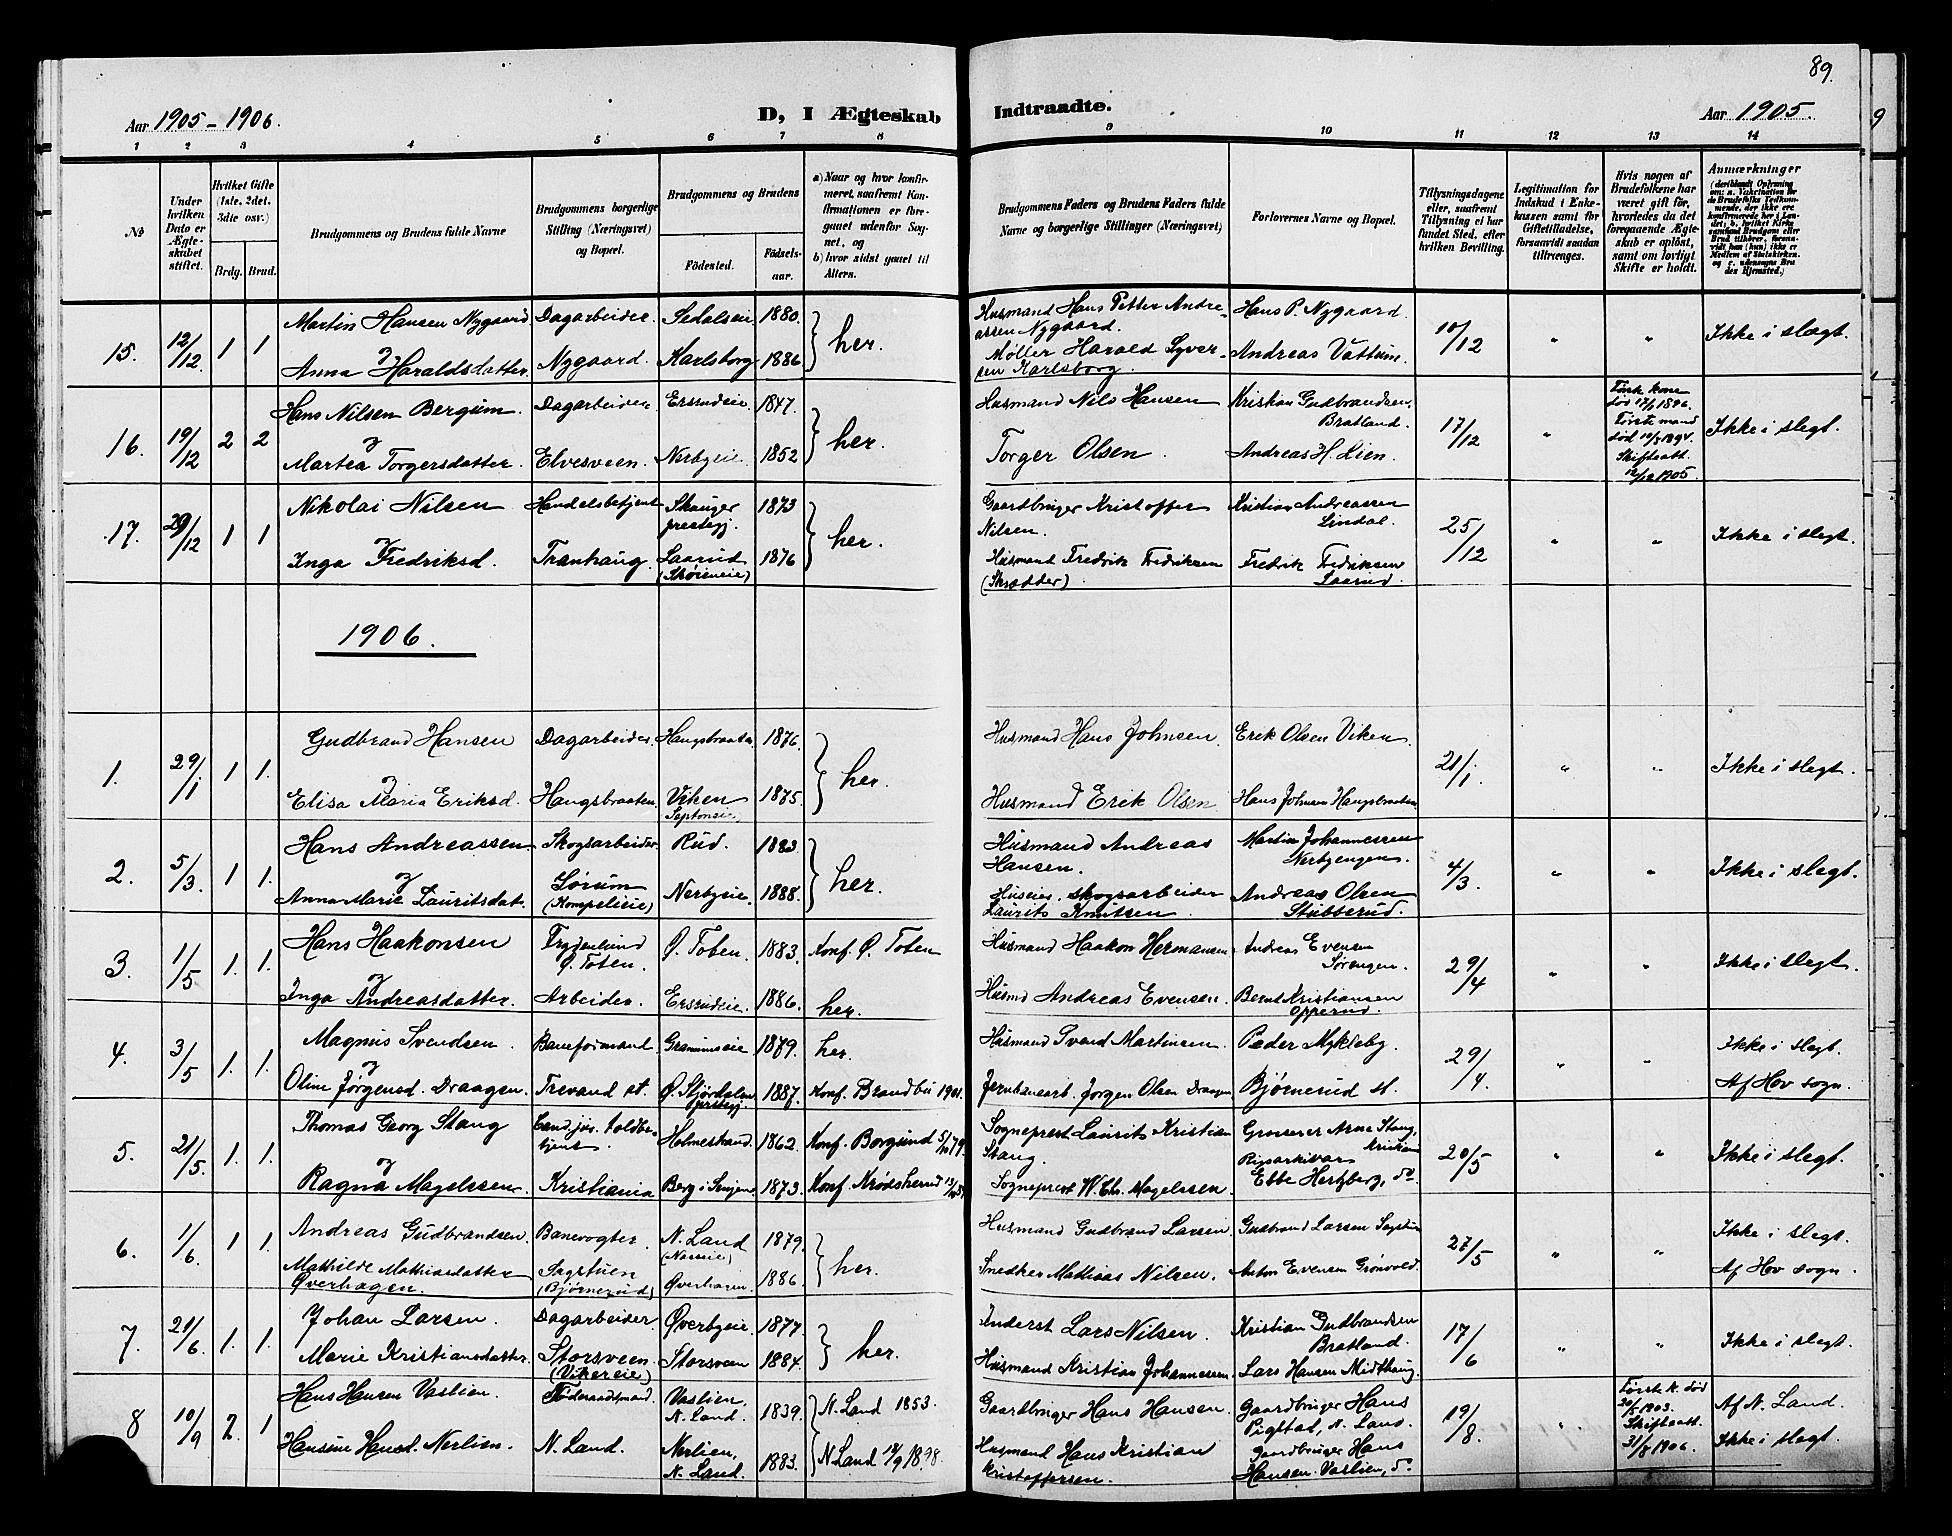 89.
Aar 1905-1906.
D, I Ægteskab Indtraadte.
Aar 1905.
1 2 3 4 5 6 7 8 9 10 11 12 13 14
No
Under hvilken Dato er Ægteskabet stiftet.
Hvilket Gifte (1ste, 2det, 3die osv.)
Brdg. Brud.
Brudgommens og Brudens fulde Navne
Brudgommens borgerlige Stilling (Næringsvei) og Bopæl.
Brudgommens og Brudens
Fødested. Fødselsaar.
a) Naar og hvor konfirmeret, saafremt Konfirmationen er foregaaet udenfor Sognet, og
b) hvor sidst gaaet til Alters.
Brudgommens Faders og Brudens Faders fulde Navne og borgerlige Stillinger (Næringsvei)
Forlovernes Navne og Bopæl.
Tillysningsdagene eller, saafremt Tillysning ei har fundet Sted, efter hvilken Bevilling.
Legitimation for Indskud i Enkekassen samt for Giftetilladelse, forsaavidt saadan tiltrænges.
Hvis nogen af Brudefolkene har været gift før, hvorledes da det foregaaende Ægteskab er opløst, samt om lovligt Skifte er holdt.
Anmærkninger
15. 12/12 1 1 Martin Hansen Nygaard Dagarbeider Sedalseie 1880. } her. Husmand Hans Petter Andreassen Nygaard. Hans P. Nygaard 10/12 " " Ikke i slægt.
og Anna Haraldsdatter. Nygaard. Karlsborg 1886 Møller Harald Syversen Karlsborg. Andreas Vattum.
16. 19/12 2 2 Hans Nilsen Bergum. Dagarbeider Ersrudeie 1847. } her. Husmand Nils Hansen Kristian Gudbrandsen Bratland. 17/12 " Første kone død 1896. Første mand død 1894. Skifteatt. 1905. Ikke i slegt.
og Martea Torgersdatter. Elvesveen. Nerbyeie 1852 Torger Olsen. Andreas H. Lien.
17. 29/12 1 1 Nikolai Nilsen Handelsbetjent Skauger prestegj. 1873 } her. Gaardbruger Kristoffer Nilsen. Kristian Andreassen Lindal. 25/12 " " Ikke i slegt.
og Inga Fredriksd. Tranhaug. Laarud 1876 Husmand Fredrik Fredriksen (Skrædder). Fredrik Fredriksen Laarud.
1906.
1. 29/1 1 1. Gudbrand Hansen Dagarbeider. Haugsbraaten 1876. } her. Husmand Hans Johnsen. Erik Olsen Viken. 21/1. " " Ikke i slegt.
og Elisa Maria Eriksd. Haugsbraaten. Viken 1875. Husmand Erik Olsen Hans Johnsen Haugsbraaten
2. 5/3. 1 1. Hans Andreassen Skogsarbeider Rud. 1883 } her. Husmand Andreas Hansen. Martin Johannessen Nerbyengen. 4/3. " " Ikke i slegt.
og Anna Marie Lauritsdat. Sørum (Kompelieie) Nerbyeie. 1888. Huseier, skogsarbeider Laurits Knutsen. Andreas Olsen Stubberud.
3. 1/5 1. 1. Hans Haakonsen Frydenlund Ø. Toten. Ø. Toten. 1883. Konf. Ø. Toten Husmand Haakon Hermansen Andreas Evensen Sørengen. 29/4 " " Ikke i slegt.
og Inga Andreasdatter. Arbeider. Ersrudeie. 1886. her. Husmd Andreas Evensen. Bernt Kristiansen Opperud.
4. 3/5 1. 1. Magnus Svendsen. Baneformand Granumseie 1879. her. Husmand Svend Martinsen. Peder Mykleby. 29/4. " " Ikke i slegt.
og Oline Jørgensd. Draagen. Trevand st. Ø. Stjørdalen prestegj. 1887. Konf. Brandbu 1901. Jernbanearb. Jørgen Olsen Draagen Bjørnerud st. Af Hov sogn.
5. 21/5. 1. 1. Thomas Georg Stang Cand. jur. toldbetjent. Holmestrand. 1862. Konf. Borgund 5/10 79. Sogneprest Laurits Kristian Stang. Grosserer Arne Stang, Kristiania 20/5 " " Ikke i slegt.
og Ragna Magelssen. Kristiania Berg i Senjen 1873. Konf. Krødsherred Sogneprest W. Chr. Magelssen. Rigsarkivar Ebbe Hertzberg, do
6. 1/6 1 1. Andreas Gudbrandsen. Banevogter. N. Land 1879. } her. Husmand Gudbrand Larsen Gudbrand Larsen 27/5 " " Ikke i slegt.
Mathilde Mathiasdatter Øverhagen. Sagstuen (Bjørnerud) Øverhagen. 1886. Snedker Mathias Nilsen. Anton Evensen Grønvold. Af Hov sogn.
7. 21/6 1. 1. Johan Larsen. Dagarbeider. Øverbyeie. 1877. } her. Inderst Lars Nilsen. Kristian Gudbrandsen Bratland. 17/6 " " Ikke i slegt.
Marie Kristiansdatter. Storsveen. (Vikereie) Storsveen 1884. Husmand Kristian Johannessen. Lars Hansen Midthaug.
8 10/9 2. 1 Hans Hansen Vaslien. Føderaadsmand Vaslien, N. Land. 1839. N. Land 1853. Gaardbruger Hans Hansen. Gaardbruger Hans N. Land. 19/8. Første k. død 1903. Skifteatt. 31/8 1906. Af N. Land.
Hansine Hansd. Nerlien. N. Land. Nerlien, N. Land. 1883. N. Land 1898. Husmand Hans Kristian Kristoffersen. Gaardbruger Hans Hansen Vaslien, do Ikke i slegt.